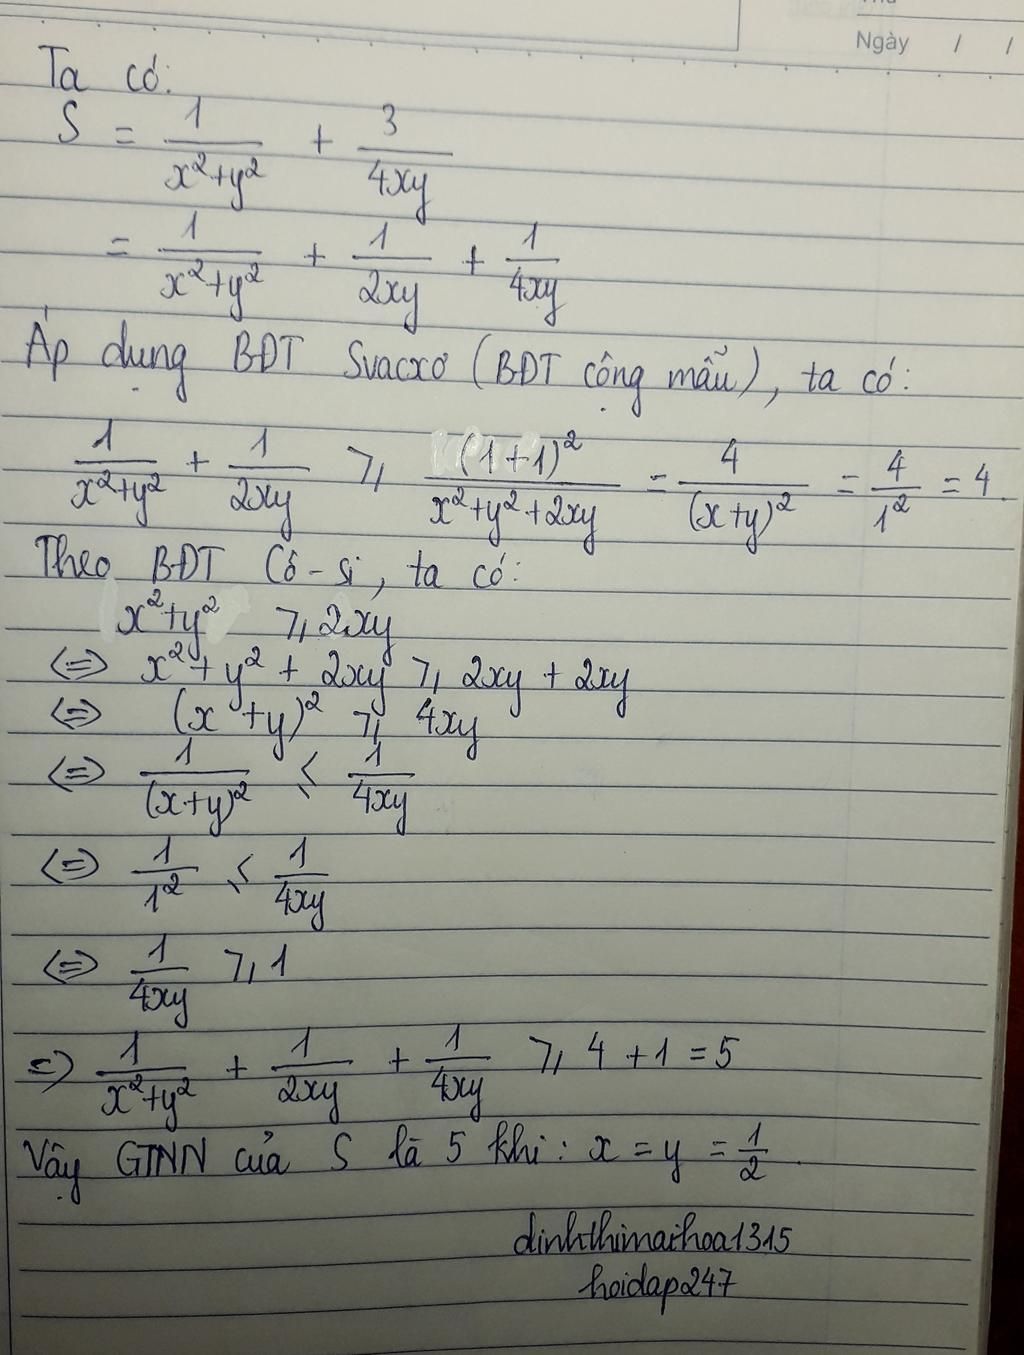 Ngày / /
Ta có:
S = 1/(x²+y²) + 3/(4xy)
= 1/(x²+y²) + 1/(2xy) + 1/(4xy)
Áp dụng BĐT Svacxơ (BĐT cộng mẫu), ta có:
1/(x²+y²) + 1/(2xy) ⩾ (1+1)²/(x²+y²+2xy) = 4/(x+y)² = 4/1² = 4.
Theo BĐT Cô-si, ta có:
x²+y² ⩾ 2xy
⇔ x²+y²+2xy ⩾ 2xy+2xy
⇔ (x+y)² ⩾ 4xy
⇔ 1/(x+y)² ⩽ 1/(4xy)
⇔ 1/1² ⩽ 1/(4xy)
⇔ 1/(4xy) ⩾ 1
⇒ 1/(x²+y²) + 1/(2xy) + 1/(4xy) ⩾ 4+1=5
Vậy GTNN của S là 5 khi: x = y = 1/2.
dinhthimaihoa1315
hoidap247